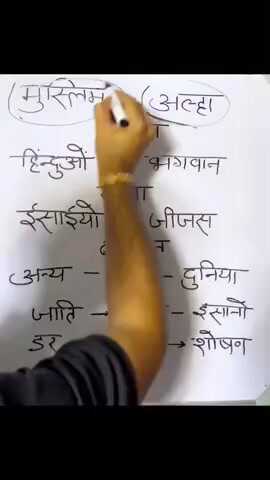 मुस्लिम अल्हा
हिंदुओं भगवान
ईसाईयो जीजस
अन्य – – दुनिया
जाति → – इंसानो
डर → शोषन